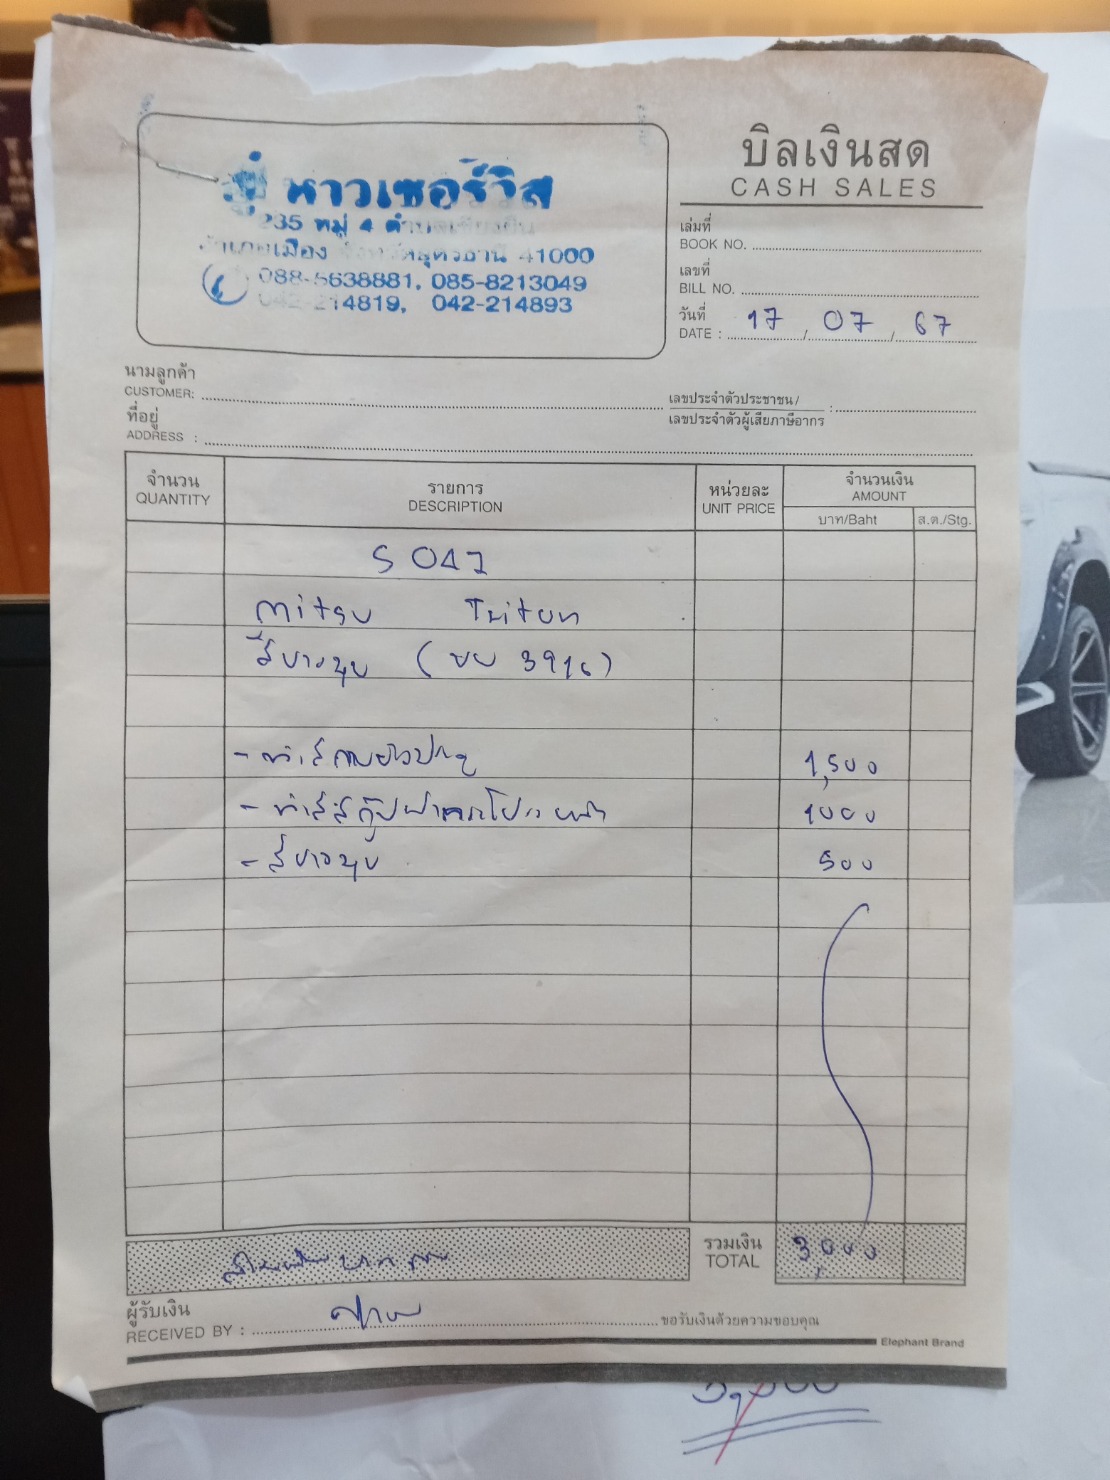 บิลเงินสด
CASH SALES
หาวเซอร์วิส
235 หมู่ 4 ตำบลเชียงยืน
อำเภอเมือง จังหวัดอุดรธานี 41000
088-5638881, 085-8213049
042-214819, 042-214893
เล่มที่
BOOK NO.
เลขที่
BILL NO.
วันที่
DATE : 17 / 07 / 67
นามลูกค้า
CUSTOMER:
เลขประจำตัวประชาชน /
เลขประจำตัวผู้เสียภาษีอากร :
ที่อยู่
ADDRESS :
จำนวน
QUANTITY
รายการ
DESCRIPTION
หน่วยละ
UNIT PRICE
จำนวนเงิน
AMOUNT
บาท/Baht
ส.ต./Stg.
S 047
mitsu Triton
(ขบ 3916)
1,500
1000
500
รวมเงิน
TOTAL
3000
สามพันบาท
ผู้รับเงิน
RECEIVED BY :
ขอรับเงินด้วยความขอบคุณ
Elephant Brand